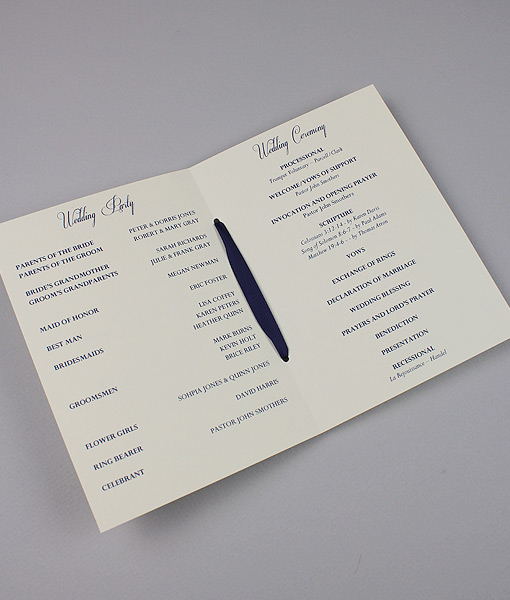 Wedding Party
PARENTS OF THE BRIDE PETER & DORRIS JONES
PARENTS OF THE GROOM ROBERT & MARY GRAY
BRIDE'S GRANDMOTHER SARAH RICHARDS
GROOM'S GRANDPARENTS JULIE & FRANK GRAY
MAID OF HONOR MEGAN NEWMAN
BEST MAN ERIC FOSTER
BRIDESMAIDS LISA COFFEY
KAREN PETERS
HEATHER QUINN
GROOMSMEN MARK BURNS
KEVIN HOLT
BRICE RILEY
FLOWER GIRLS SOHPIA JONES & QUINN JONES
RING BEARER DAVID HARRIS
CELEBRANT PASTOR JOHN SMOTHERS
Wedding Ceremony
PROCESSIONAL
Trumpet Voluntary - Purcell/Clark
WELCOME/VOWS OF SUPPORT
Pastor John Smothers
INVOCATION AND OPENING PRAYER
Pastor John Smothers
SCRIPTURE
Colossians 3:12-14 - by Karen Davis
Song of Solomon 8:6-7 - by Paul Adams
Matthew 19:4-6 - by Thomas Acton
VOWS
EXCHANGE OF RINGS
DECLARATION OF MARRIAGE
WEDDING BLESSING
PRAYERS AND LORD'S PRAYER
BENEDICTION
PRESENTATION
RECESSIONAL
La Rejouissance - Handel